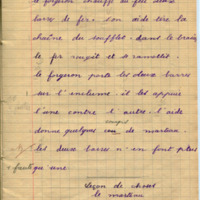 le forgeron chauffe au feu deux
barres de fer. son aide tire la
chaîne du soufflet. dans le brasier
le fer rougit et se ramollit.
le forgeron porte les deux barres
sur l'enclume. il les appuie
l'une contre l'autre. l'aide
donne quelques coups de marteau
les deux barres n'en font plus
qu'une.
Leçon de choses
le marteau